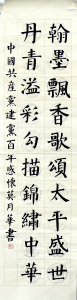 翰墨飄香歌頌太平盛世
丹青溢彩勾描錦繡中華
中國共產黨建黨百年感懷莫月華書